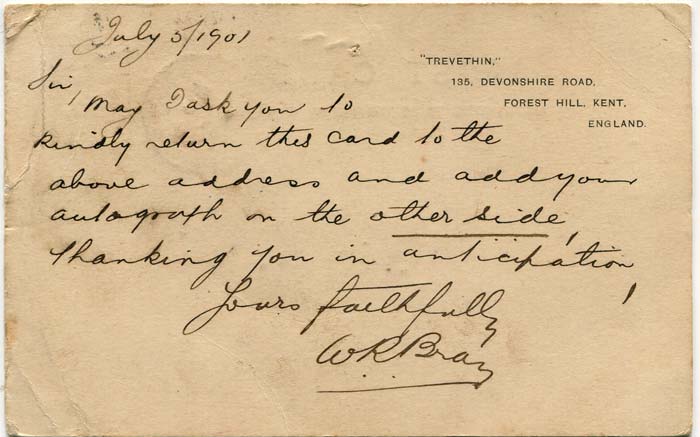 July 5/1901
"TREVETHIN,"
135, DEVONSHIRE ROAD,
FOREST HILL, KENT.
ENGLAND.
Sir,
May I ask you to
kindly return this card to the
above address and add your
autograph on the other side,
Thanking you in anticipation,
Yours faithfully
W R Bray